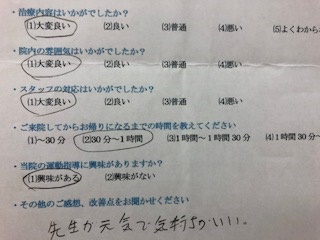 ・治療内容はいかがでしたか?
(1)大変良い (2)良い (3)普通 (4)悪い (5)よくわから
・院内の雰囲気はいかがでしたか?
(1)大変良い (2)良い (3)普通 (4)悪い
・スタッフの対応はいかがでしたか?
(1)大変良い (2)良い (3)普通 (4)悪い
・ご来院してからお帰りになるまでの時間を教えてください
(1)～30分 (2)30分～1時間 (3)1時間～1時間30分 (4)1時間30分～
・当院の運動指導に興味がありますか?
(1)興味がある (2)興味がない
・その他のご感想、改善点をお聞かせください
先生が元気で気持ちがいい。